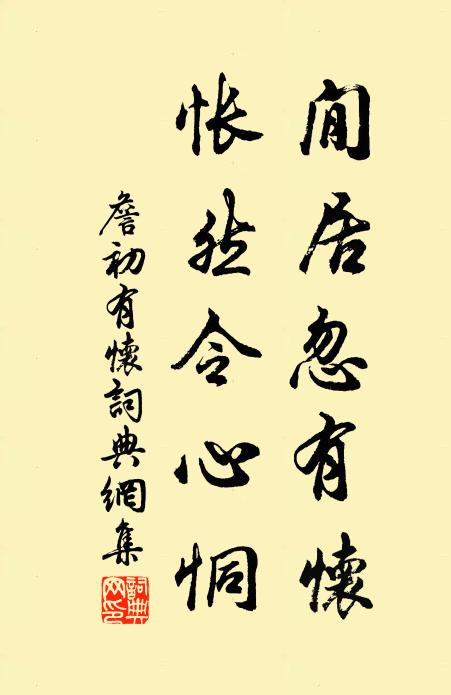 閒居忽有懷
悵然令心恫
詹初有懷詞典網集
詞典網印